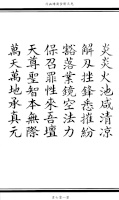 炎炎火池咸清凉
解及挫鋒悉摧紛
豁落業鏡空法力
保召罪性來吾壇
天尊聖智本無際
萬天萬地承真元